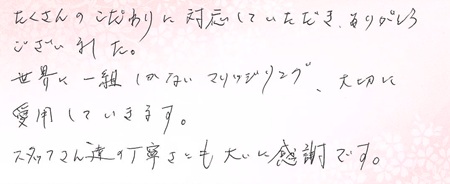 たくさんのこだわりに対応していただき、ありがとう
ございました。
世界に一組しかないマリッジリング、大切に
愛用していきます。
スタッフさん達の丁寧さにも大いに感謝です。